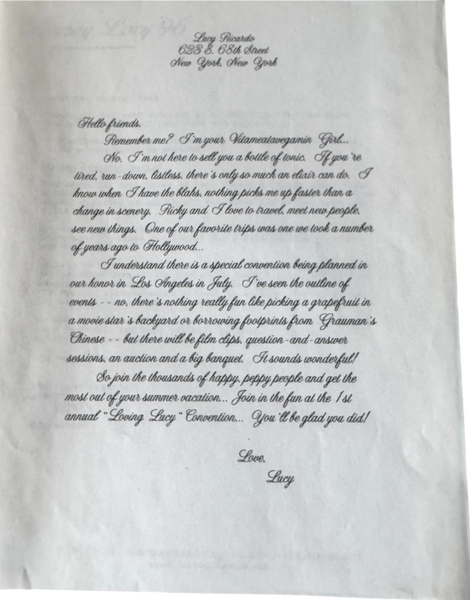 Lucy Ricardo
623 E. 68th Street
New York, New York
Hello friends,
Remember me? I'm your Vitameatavegamin Girl...
No, I'm not here to sell you a bottle of tonic. If you're
tired, run-down, listless, there's only so much an elixir can do. I
know when I have the blahs, nothing picks me up faster than a
change in scenery. Ricky and I love to travel, meet new people,
see new things. One of our favorite trips was one we took a number
of years ago to Hollywood...
I understand there is a special convention being planned in
our honor in Los Angeles in July. I've seen the outline of
events -- no, there's nothing really fun like picking a grapefruit in
a movie star's backyard or borrowing footprints from Grauman's
Chinese -- but there will be film clips, question-and-answer
sessions, an auction and a big banquet. It sounds wonderful!
So join the thousands of happy, peppy people and get the
most out of your summer vacation... Join in the fun at the 1st
annual "Loving Lucy" Convention... You'll be glad you did!
Love,
Lucy